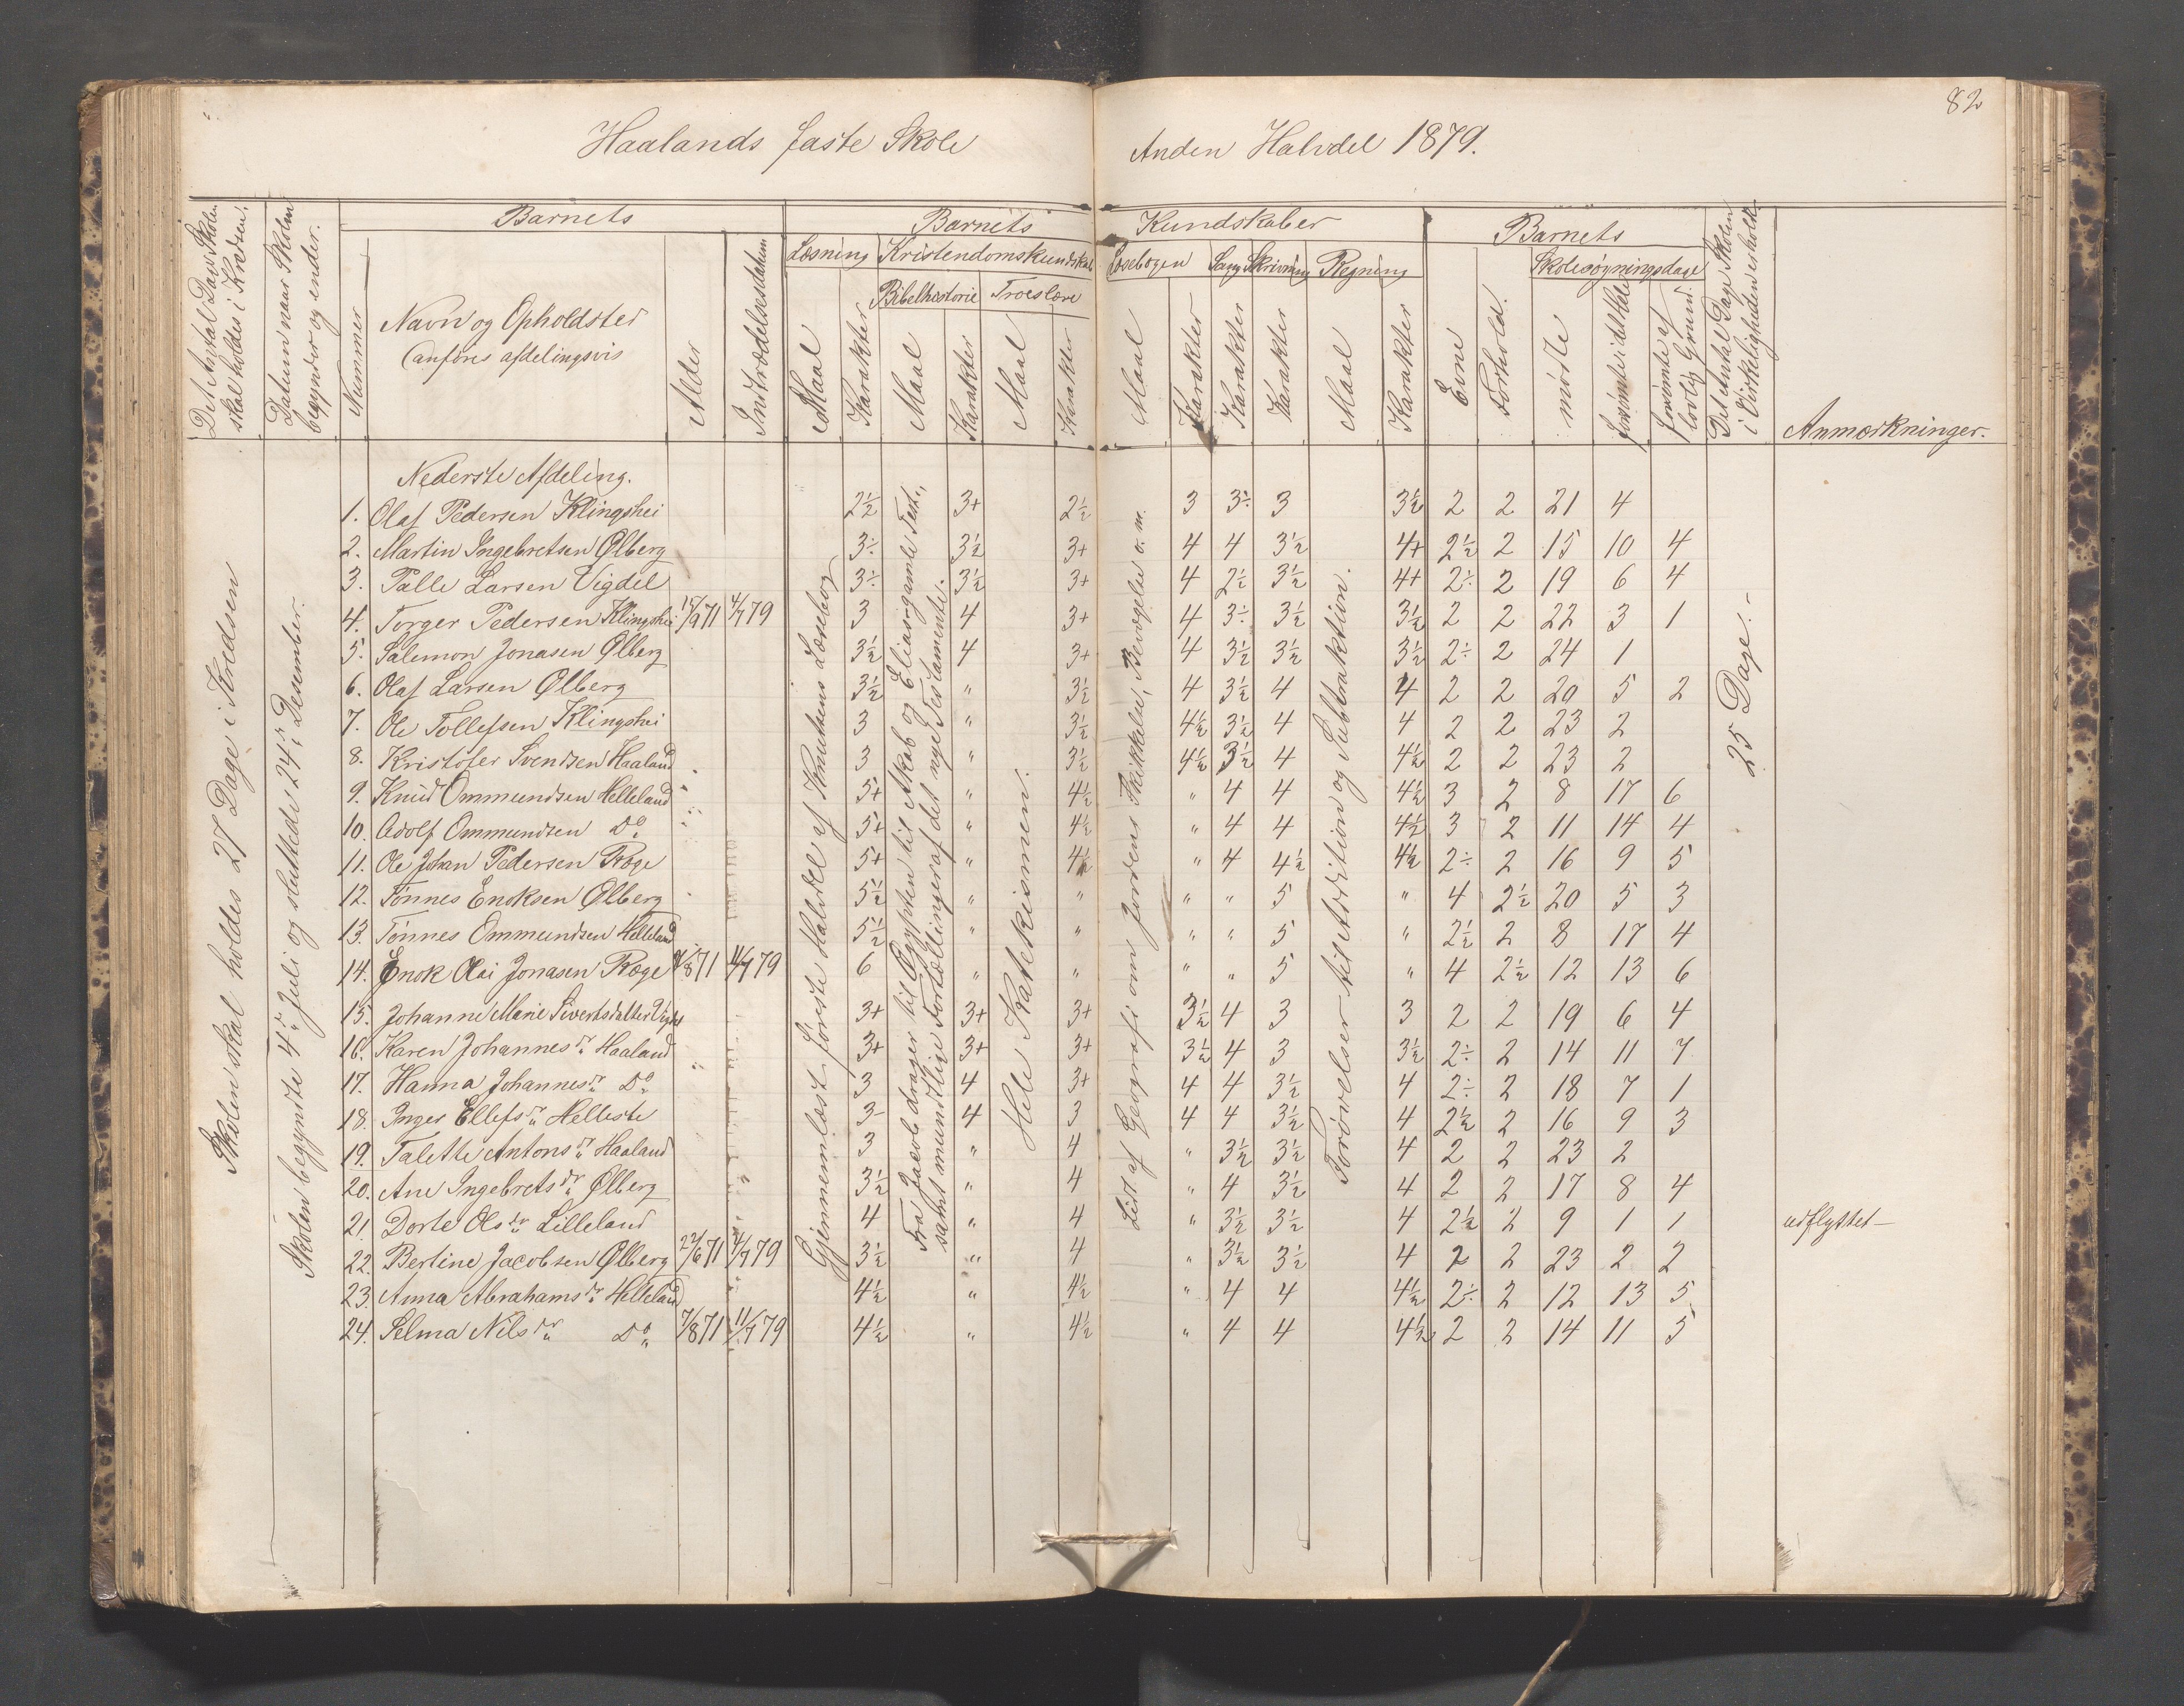 82
Haalands faste Skole Anden Halvdel 1879.
Det Antal Dage Skolen skal holdes i Kredsen.
Datum naar Skolen begynder og ender.
Barnets
Nummer
Navn og Opholdsted
(anføres afdelingsvis
Alder
Indtrædelsesdatum
Barnets Kundskaber
Læsning Kristendomskundskab Læsebogen Sang Skrivning Regning
Bibelhistorie Troeslære
Maal Karakter Maal Karakter Maal Karakter Maal Karakter Karakter Karakter Maal Karakter
Barnets
Evne Forhold.
Skolesøgningsdage
mødte forsømte i det Hele forsømte af lovlig Grund.
Det Antal Dage Skolen i Virkeligheden er holdt.
Anmærkninger.
Skolen skal holdes 27 Dage i Kredsen
Skolen begyndte 4de Juli og sluttede 24de Desember.
Gjennemlæst første Halvdel af Knudsens Læsebog
Fra Jacob drager til Ægypten til Akab og Elias gamle Test.
samt mundtlige Fortællinger af det nye Testamente.
Hele Katekismen.
Lidt af Geografi om Jordens Skikkelse, Bevægelse o. m.
Forøvelser til Addition og Subtraktion.
25 Dage.
Nederste Afdeling.
1. Olaf Pedersen Klingshei 2½ 3+ 2½ 3 3÷ 3 3½ 2 2 21 4
2. Martin Ingebretsen Ølberg 3÷ 3½ 3+ 4 4 3½ 4+ 2½ 2 15 10 4
3. Palle Larsen Vigdel 3÷ 3½ 3+ 4 2½ 3½ 4+ 2÷ 2 19 6 4
4. Torger Pedersen Klingshei 15/9 71 4/7 79 3 4 3+ 4 3÷ 3½ 3½ 2 2 22 3 1
5. Salemon Jonasen Ølberg 3½ 4 3+ 4 3½ 3½ 3½ 2÷ 2 24 1
6. Olaf Larsen Ølberg 3½ " 3½ 4 3½ 4 4 2 2 20 5 2
7. Ole Tollefsen Klingshei 3 " 3½ 4½ 3½ 4 4 2 2 23 2
8. Kristofer Svendsen Haaland 3 " 3½ 4½ 3½ 4 4½ 2 2 23 2
9. Knud Ommundsen Helleland 5+ " 4½ " 4 4 4½ 3 2 8 17 6
10. Adolf Ommundsen Do 5+ " 4½ " 4 4 4½ 3 2 11 14 4
11. Ole Johan Pedersen Ræge 5+ " 4½ " 4 4½ 4½ 2÷ 2 16 9 5
12. Tønnes Enoksen Ølberg 5½ " " " " 5 " 4 2½ 20 5 3
13. Tønnes Ommundsen Helleland 5½ " " " " 5 " 2½ 2 8 17 4
14. Enok Olai Jonasen Ræge /8 71 /7 79 6 " " " " 5 " 4 2½ 12 13 6
15. Johanne Marie Sivertsdatter Vigdel 3+ 3+ 3+ 3½ 4 3 3 2 2 19 6 4
16. Karen Johannesdr Haaland 3+ 3+ 3+ 3½ 4 3 3½ 2÷ 2 14 11 7
17. Hanna Johannesdr Do 3 4 3+ 4 4 3½ 4 2÷ 2 18 7 1
18. Inger Ellefsdr Helleste 3- 4 3 4 4 3½ 4 2½ 2 16 9 3
19. Talette Antonsdr Haaland 3 " 4 " 3½ 3½ 4 2 2 23 2
20. Ane Ingebretsdr Ølberg 3½ " 4 " 4 3½ 4 2 2 17 8 4
21. Dorte Olsdr Lilleland 4 " 4 " 3½ 3½ 4 2½ 2 9 1 1 udflyttet
22. Bertine Jacobsen Ølberg 22/6 71 4/7 79 3½ " 4 " 3½ 3½ 4 2 2 23 2 2
23. Anna Abrahamsdr Helleland 4½ " 4½ " 4 4 4½ 2÷ 2 12 13 5
24. Selma Nilsdr Do 7/8 71 11/7 79 4½ " 4½ " 4 4 4½ 2 2 14 11 5